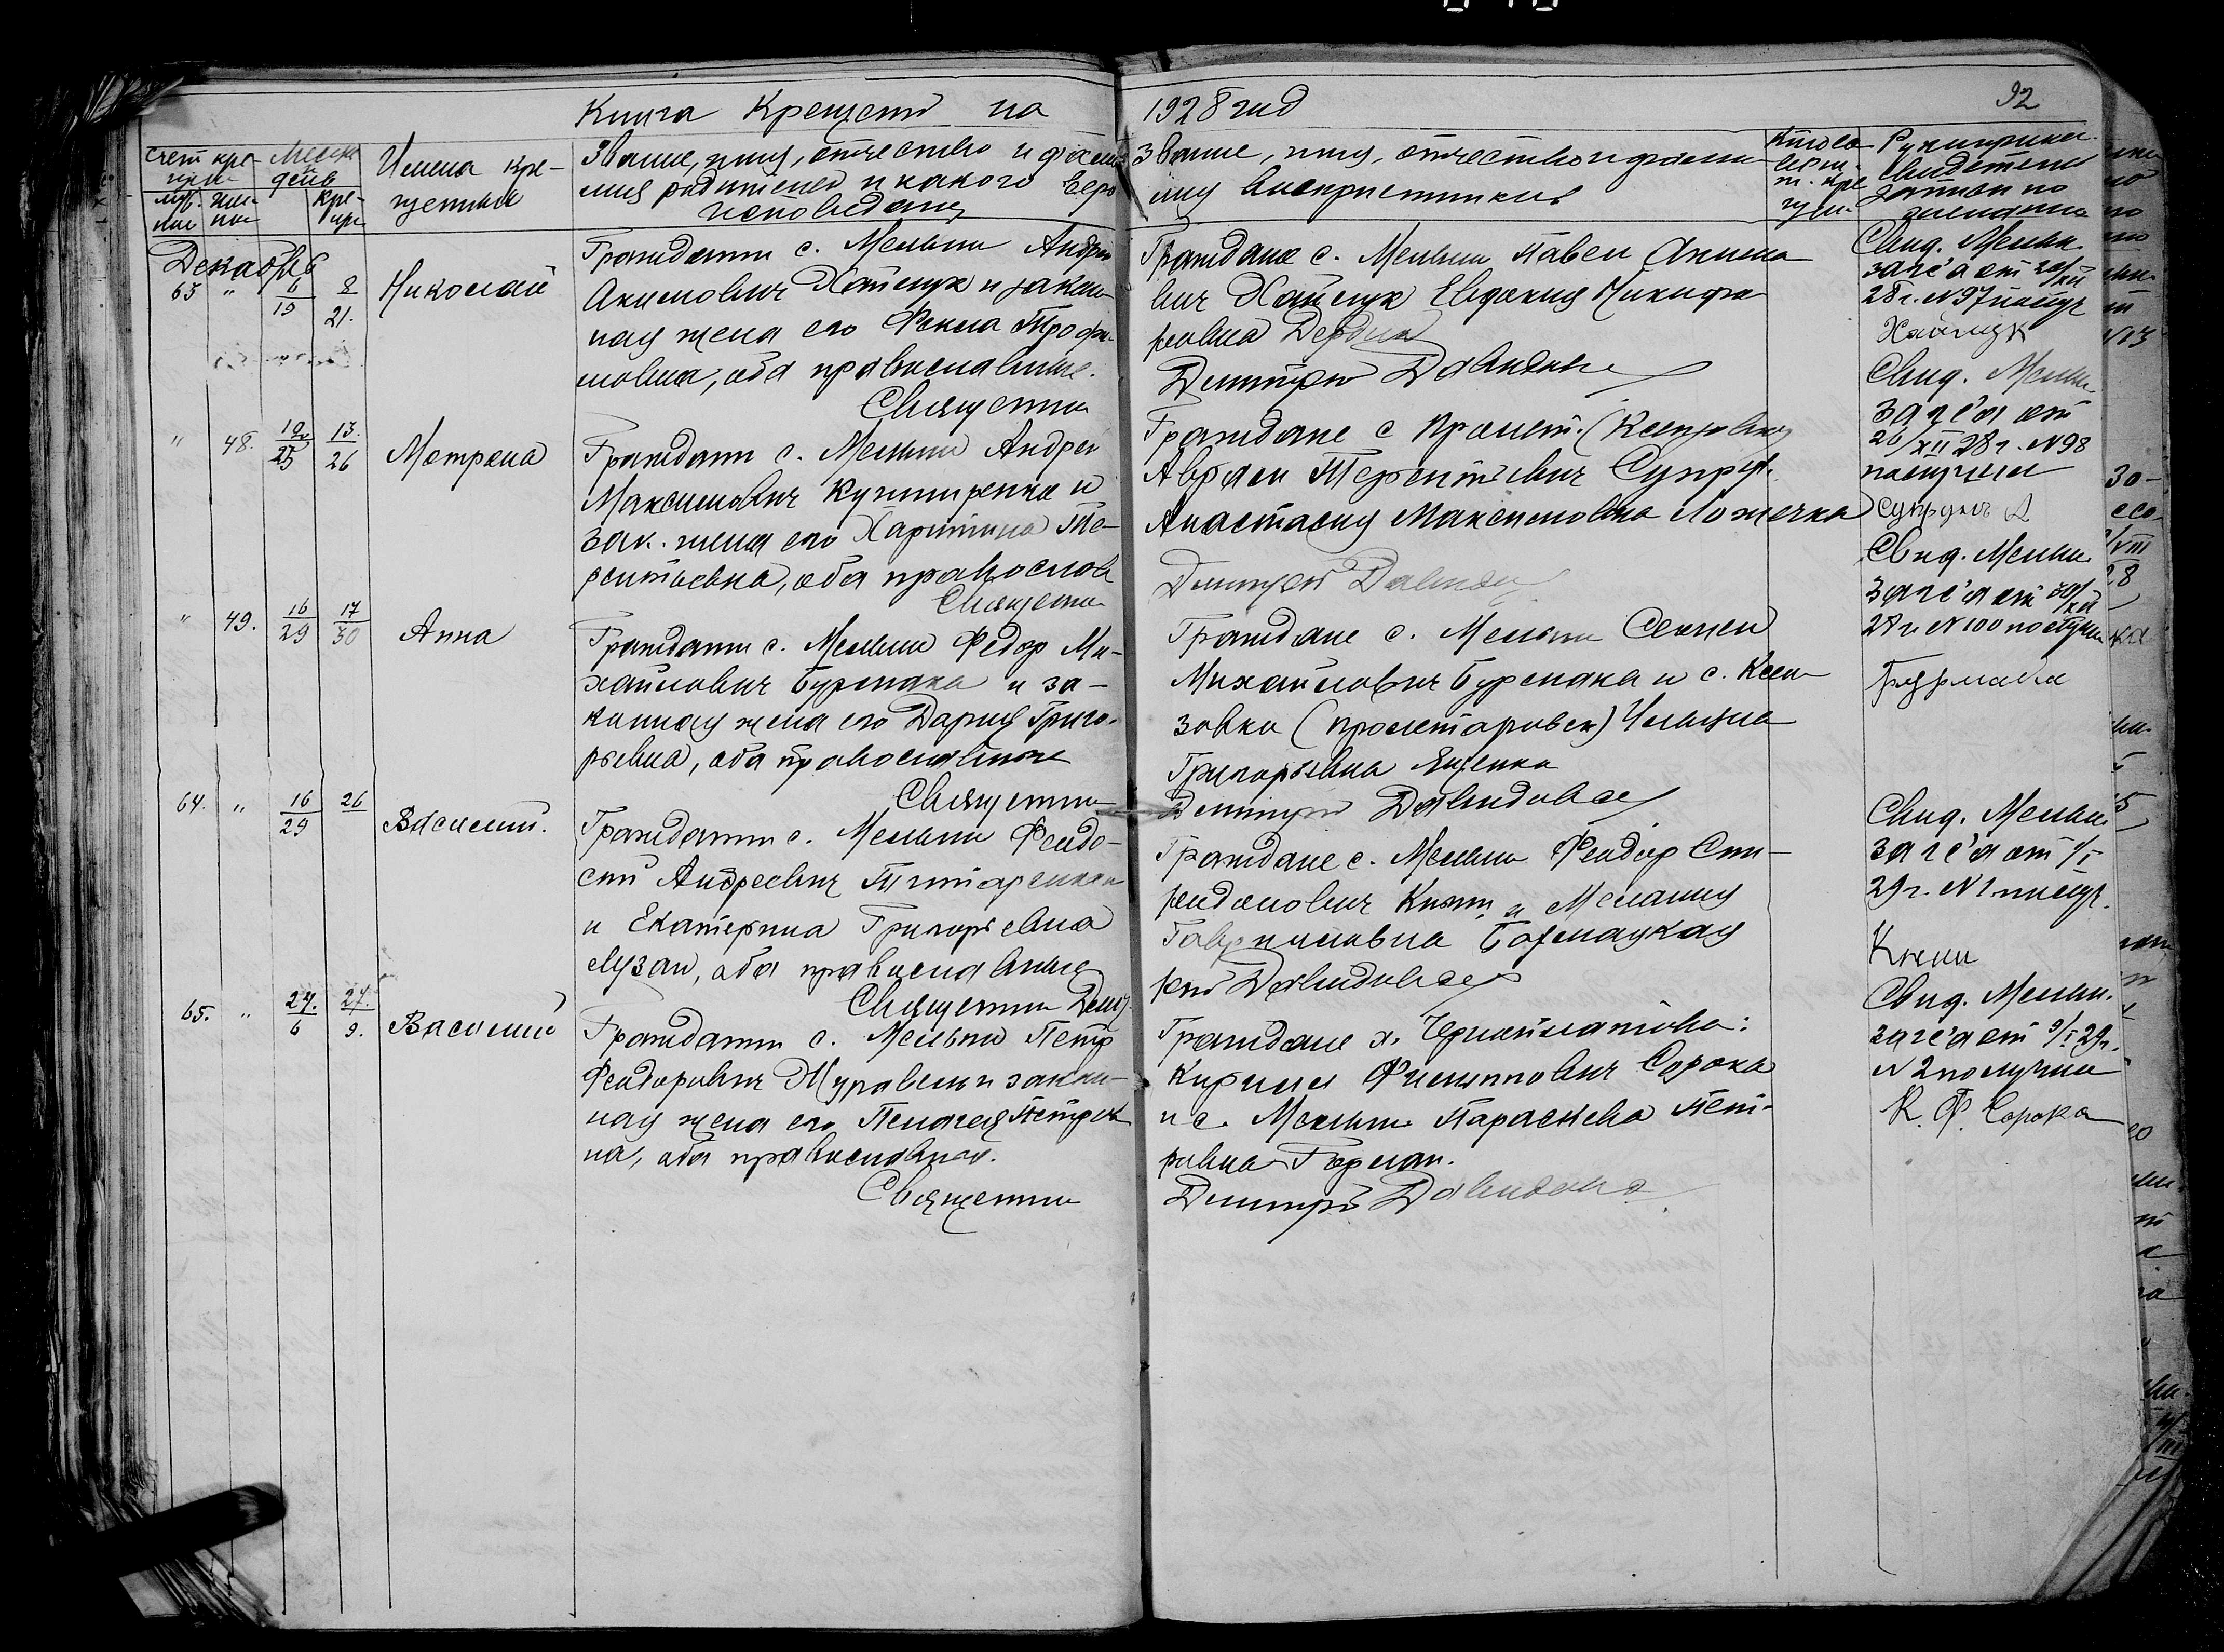 Книга Крещеній на 1928 год
92
Счет кре-
щен.
муж. жен-
ского пол
Месяц
и
день
Кре-
щен.
Имена кре-
щенных
Звание, имя, отчество и фами-
лия родителей и какого веро
исповедания
Звание, имя, отчество и фами-
лия восприемников
Кто со-
верш.
т. кре
щен.
Рукоприкл.
свидетелей
записи по
желанию
Декабрь
63 " 6/19 8/21. Николай
Гражданин с. Мельни Андрей
Акимович Хайнук и закон-
ная жена его Фекла Трофи-
мовна, оба православные.
Священник
Граждане с. Мельни Павел Акимо
вич Хайнук Евдокия Никифо
ровна
Димитрий Давидов
Свид. Мельн.
загс'а от 20/XII
28 г. № 97 получ
Хайнук
" 48. 12/25 13/26 Мотрона
Гражданин с. Мельни Андрей
Максимович Кушниренко и
зак. жена его Харитина Те-
рентьевна, оба православ
Священник
Граждане с Пролет. (Ксензовки)
Авраам Терентьевич Супрун
Анастасия Максимовна Ложечка
Димитрий Давидов
Свид. Мельн.
загс'а от
26/XII 28 г. № 98
получили
Супрун А
" 49. 16/29 17/30 Анна
Гражданин с. Мельни Федор Ми-
хайлович Бурмака и за-
конная жена его Дария Григо-
рьевна, оба православные
Священник
Граждане с. Мельни Семен
Михайлович Бурмака и с. Ксен
зовки (Пролетаровск)
Григорьевна Яценко
Димитрий Давидов
Свид. Мельн.
загс'а от 30/XII
28 г. № 100 получил
Бурмака
64. " 16/29 26 Василий.
Гражданин с. Мельни Феодо-
сий Андреевич Титаренко
и Екатерина Григорьевна
Лузан, оба православные
Священник Дмит
Граждане с. Мельни Феодор Спи-
ридонович Книш и Мелания
Гавриловна
рий Давидов
Свид. Мельн.
загс'а от 1/I
29 г. № 1 получ.
Книш
65. " 24./6 27./9. Василий
Гражданин с. Мельни Петр
Феодорович Журавель и закон-
ная жена его Пелагея Петров
на, оба православные.
Священник
Граждане х.
Кирилл Филиппович Сорока
и с. Мельни Параскева Пет-
ровна Горман.
Димитрий Давидов
Свид. Мельн.
загс'а от 9/I 29 г.
№ 2 получил
К. Ф. Сорока